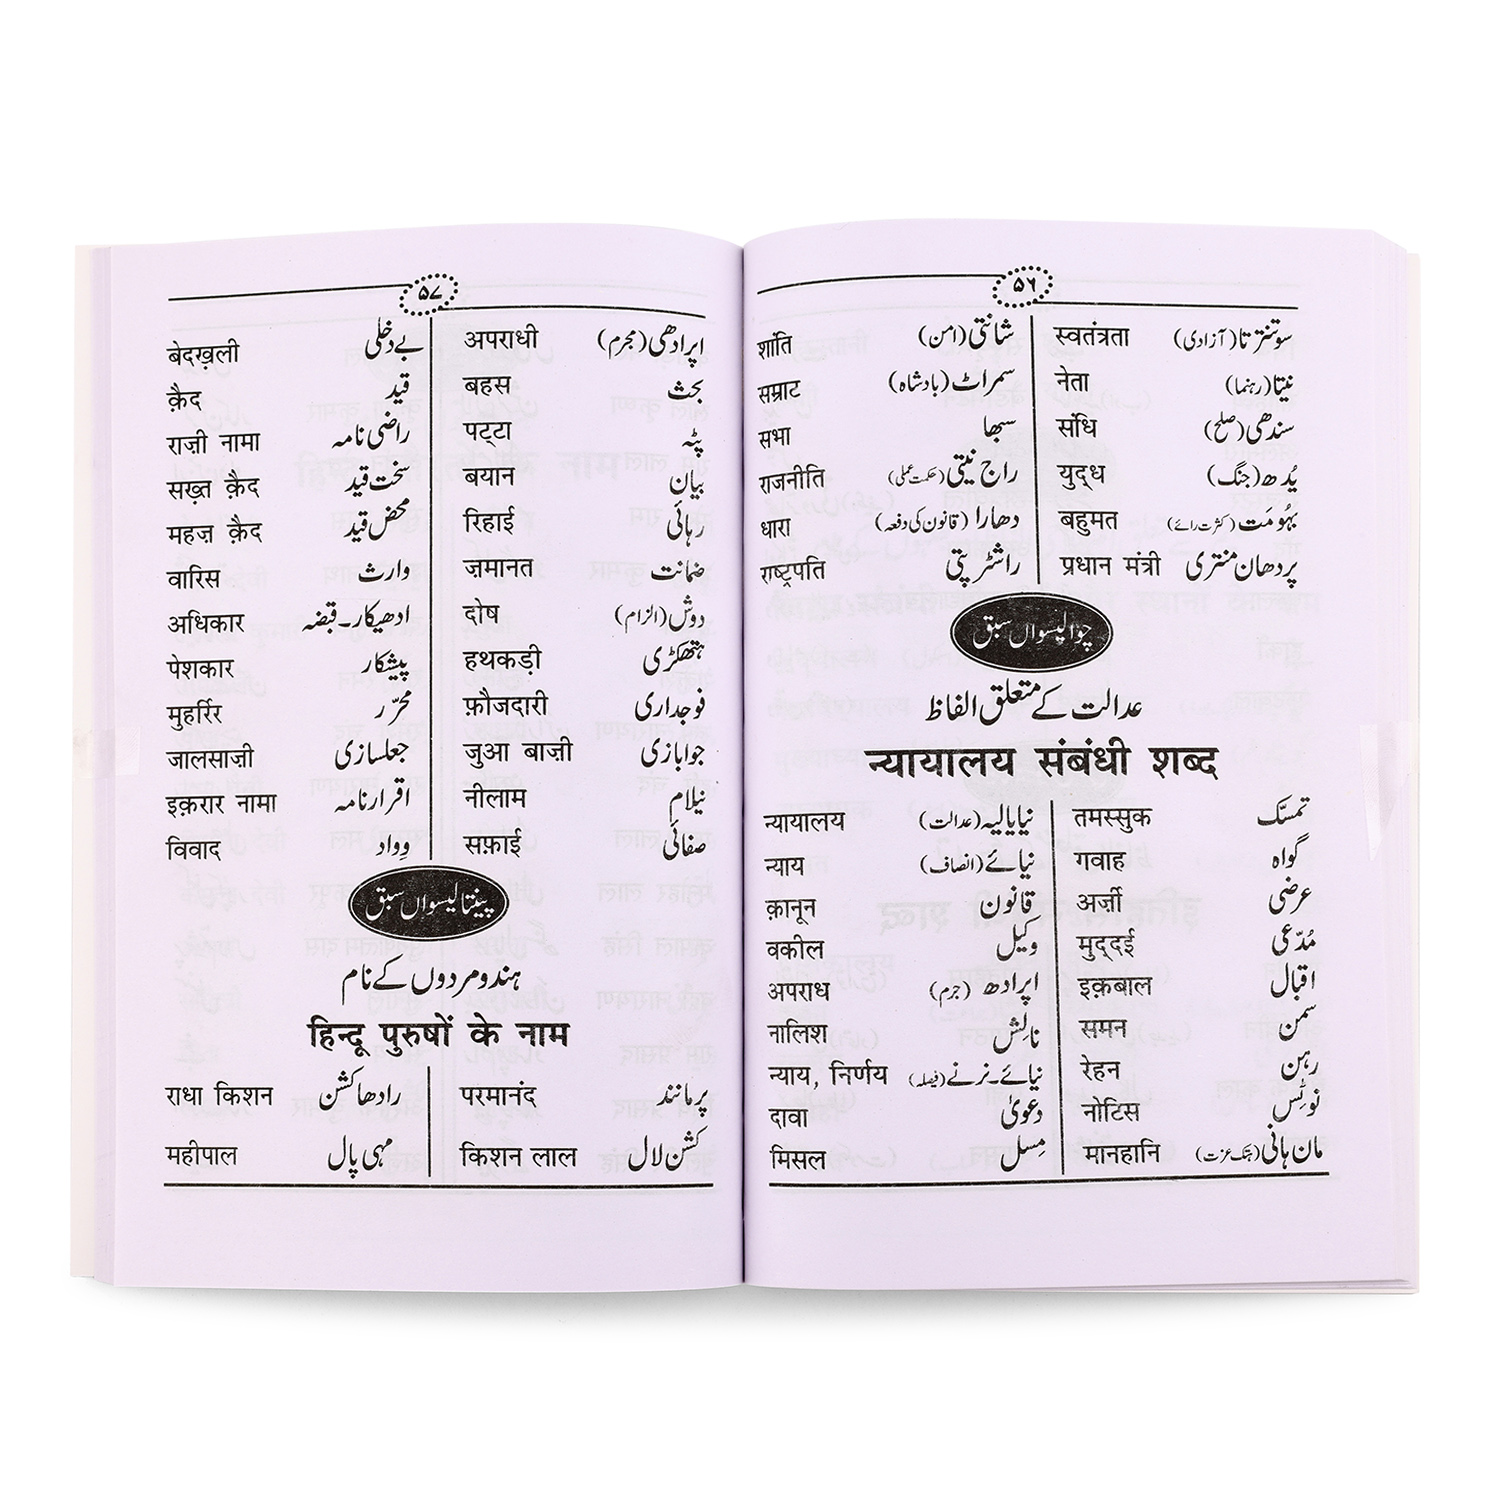 ۵۶
سوتنترتا (آزادی) स्वतंत्रता شانتی (امن) शांति
نیتا (رہنما) नेता سمراٹ (بادشاہ) सम्राट
سندھی (صلح) संधि سبھا सभा
یُدھ (جنگ) युद्ध راج نیتی (حکمت عملی) राजनीति
بہُومَت (کثرت رائے) बहुमत دھارا (قانون کی دفعہ) धारा
پردھان منتری प्रधान मंत्री راشٹرپتی राष्ट्रपति
چوالیسواں سبق
عدالت کے متعلق الفاظ
न्यायालय संबंधी शब्द
تمسّک तमस्सुक نیایالیہ (عدالت) न्यायालय
گواہ गवाह نیائے (انصاف) न्याय
عرضی अर्ज़ी قانون क़ानून
مُدّعی मुद्दई وکیل वकील
اقبال इक़बाल اپرادھ (جرم) अपराध
سمن समन نالِش नालिश
رہن रेहन نیائے۔نرنے (فیصلہ) न्याय, निर्णय
نوٹِس नोटिस دعویٰ दावा
مان ہانی (ہتک عزت) मानहानि مِسل मिसल
۵۷
اپرادھی (مجرم) अपराधी بے دخلی बेदख़ली
بحث बहस قید क़ैद
پٹہ पट्टा راضی نامہ राज़ी नामा
بیان बयान سخت قید सख़्त क़ैद
رہائی रिहाई محض قید महज़ क़ैद
ضمانت ज़मानत وارث वारिस
دوش (الزام) दोष ادھیکار۔قبضہ अधिकार
ہتھکڑی हथकड़ी پیشکار पेशकार
فوجداری फ़ौजदारी محرّر मुहर्रिर
جوابازی जुआ बाज़ी جعلسازی जालसाज़ी
نیلام नीलाम اقرارنامہ इक़रार नामा
صفائی सफ़ाई وِواد विवाद
پینتالیسواں سبق
ہندو مردوں کے نام
हिन्दू पुरुषों के नाम
پرمانند परमानंद رادھاکشن राधा किशन
کشن لال किशन लाल مہی پال महीपाल